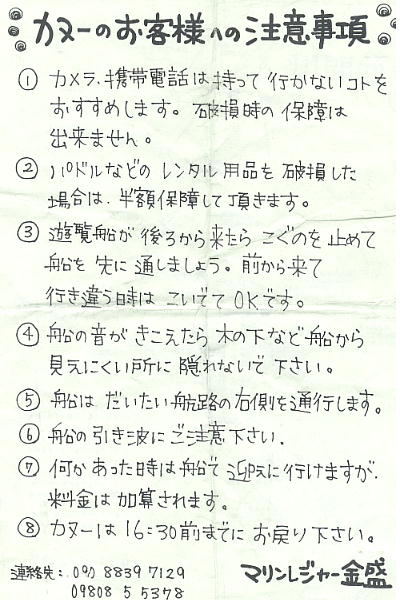 カヌーのお客様への注意事項
① カメラ、携帯電話は持って行かないコトを
おすすめします。破損時の保障は
出来ません。
② パドルなどのレンタル用品を破損した
場合は、半額保障して頂きます。
③ 遊覧船が後ろから来たらこぐのを止めて
船を先に通しましょう。前から来て
行き違う時はこいでてOKです。
④ 船の音がきこえたら木の下など船から
見えにくい所に隠れないで下さい。
⑤ 船はだいたい航路の右側を通行します。
⑥ 船の引き波にご注意下さい.
⑦ 何かあった時は船で迎えに行けますが、
料金は加算されます。
⑧ カヌーは16:30前までにお戻り下さい。
連絡先: 090 8839 7129
09808 5 5378
マリンレジャー金盛